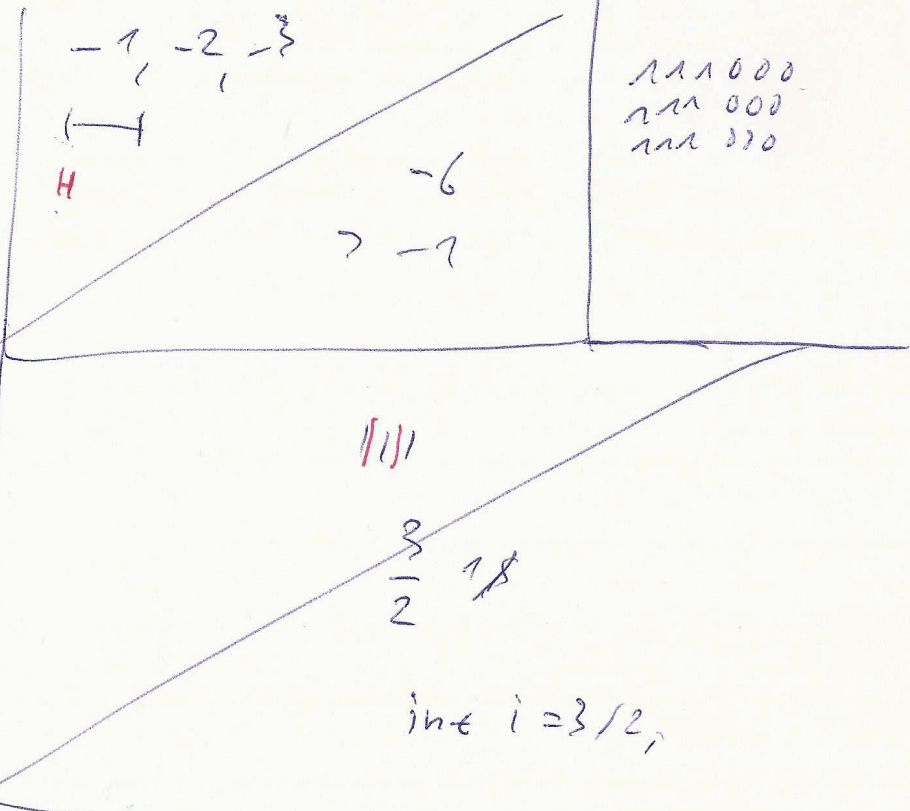 -1, -2, -3
H
-6
> -1
111000
111 000
111 000
3
2
int i = 3/2;